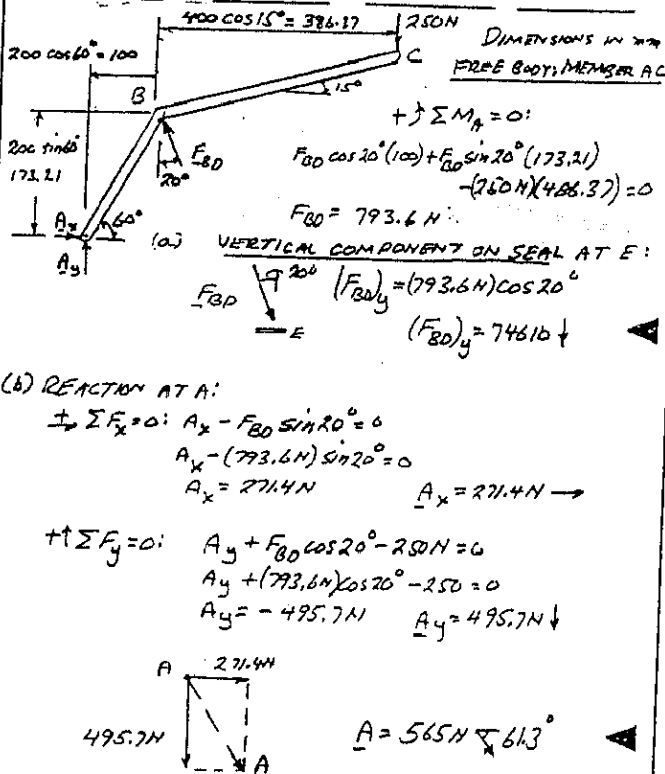 400 cos 15° = 386.37
250N
DIMENSIONS IN mm
200 cos 60° = 100
C
FREE BODY: MEMBER AC
B
15°
+↺ ΣM_A = 0:
200 sin 60°
173.21
F_BD
20°
F_BD cos 20° (100) + F_BD sin 20° (173.21)
-(250N)(486.37) = 0
F_BD = 793.6 N
A_x
60°
A_y
(a) VERTICAL COMPONENT ON SEAL AT E:
F_BD
20°
(F_BD)_y = (793.6N) cos 20°
E
(F_BD)_y = 746 lb ↓
(b) REACTION AT A:
+→ ΣF_x = 0: A_x - F_BD sin 20° = 0
A_x - (793.6N) sin 20° = 0
A_x = 271.4N A_x = 271.4N →
+↑ ΣF_y = 0: A_y + F_BD cos 20° - 250N = 0
A_y + (793.6N) cos 20° - 250 = 0
A_y = - 495.7N A_y = 495.7N ↓
A 271.4N
495.7N
A
A = 565N ⦪ 61.3°